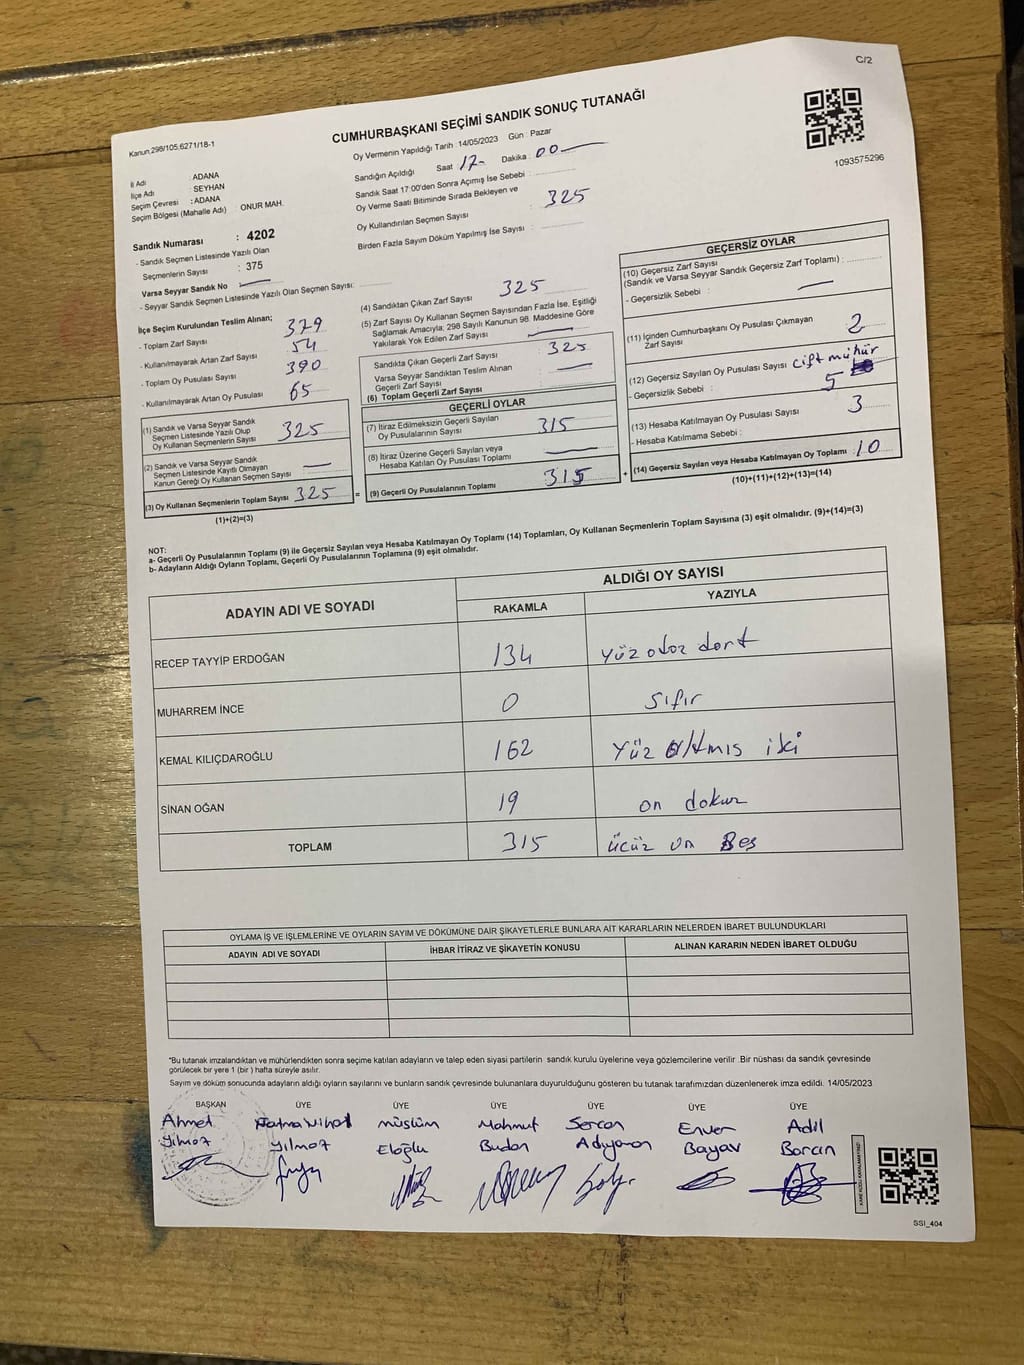 C/2
Kanun,298/105;6271/18-1
CUMHURBAŞKANI SEÇİMİ SANDIK SONUÇ TUTANAĞI
1093575296
İl Adı : ADANA
İlçe Adı : SEYHAN
Seçim Çevresi : ADANA
Seçim Bölgesi (Mahalle Adı) ONUR MAH.
Sandık Numarası : 4202
- Sandık Seçmen Listesinde Yazılı Olan
Seçmenlerin Sayısı : 375
Varsa Seyyar Sandık No
- Seyyar Sandık Seçmen Listesinde Yazılı Olan Seçmen Sayısı:
Oy Vermenin Yapıldığı Tarih : 14/05/2023 Gün : Pazar
Sandığın Açıldığı Saat 17- Dakika : 00
Sandık Saat 17:00'den Sonra Açımış İse Sebebi :
Oy Verme Saati Bitiminde Sırada Bekleyen ve
Oy Kullandırılan Seçmen Sayısı 325
Birden Fazla Sayım Döküm Yapılmış İse Sayısı :
İlçe Seçim Kurulundan Teslim Alınan;
- Toplam Zarf Sayısı 379
- Kullanılmayarak Artan Zarf Sayısı 54
- Toplam Oy Pusulası Sayısı 390
- Kullanılmayarak Artan Oy Pusulası 65
(1) Sandık ve Varsa Seyyar Sandık
Seçmen Listesinde Yazılı Olup
Oy Kullanan Seçmenlerin Sayısı 325
(2) Sandık ve Varsa Seyyar Sandık
Seçmen Listesinde Kayıtlı Olmayan
Kanun Gereği Oy Kullanan Seçmen Sayısı
(3) Oy Kullanan Seçmenlerin Toplam Sayısı 325
(1)+(2)=(3)
(4) Sandıktan Çıkan Zarf Sayısı 325
(5) Zarf Sayısı Oy Kullanan Seçmen Sayısından Fazla İse, Eşitliği
Sağlamak Amacıyla; 298 Sayılı Kanunun 98. Maddesine Göre
Yakılarak Yok Edilen Zarf Sayısı
Sandıkta Çıkan Geçerli Zarf Sayısı : 325
Varsa Seyyar Sandıktan Teslim Alınan
Geçerli Zarf Sayısı :
(6) Toplam Geçerli Zarf Sayısı
GEÇERLİ OYLAR
(7) İtiraz Edilmeksizin Geçerli Sayılan
Oy Pusulalarının Sayısı : 315
(8) İtiraz Üzerine Geçerli Sayılan veya
Hesaba Katılan Oy Pusulası Toplamı
= (9) Geçerli Oy Pusulalarının Toplamı 315 +
GEÇERSİZ OYLAR
(10) Geçersiz Zarf Sayısı
(Sandık ve Varsa Seyyar Sandık Geçersiz Zarf Toplamı) :
- Geçersizlik Sebebi :
(11) İçinden Cumhurbaşkanı Oy Pusulası Çıkmayan
Zarf Sayısı 2
(12) Geçersiz Sayılan Oy Pusulası Sayısı çift mühür
- Geçersizlik Sebebi : 5
(13) Hesaba Katılmayan Oy Pusulası Sayısı 3
- Hesaba Katılmama Sebebi :
(14) Geçersiz Sayılan veya Hesaba Katılmayan Oy Toplamı : 10
(10)+(11)+(12)+(13)=(14)
NOT:
a- Geçerli Oy Pusulalarının Toplamı (9) ile Geçersiz Sayılan veya Hesaba Katılmayan Oy Toplamı (14) Toplamları, Oy Kullanan Seçmenlerin Toplam Sayısına (3) eşit olmalıdır. (9)+(14)=(3)
b- Adayların Aldığı Oyların Toplamı, Geçerli Oy Pusulalarının Toplamına (9) eşit olmalıdır.
ADAYIN ADI VE SOYADI ALDIĞI OY SAYISI
RAKAMLA YAZIYLA
RECEP TAYYİP ERDOĞAN 134 yüz otoz dort
MUHARREM İNCE 0 sıfır
KEMAL KILIÇDAROĞLU 162 Yüz Altmıs iki
SİNAN OĞAN 19 on dokuz
TOPLAM 315 ücüz on Beş
OYLAMA İŞ VE İŞLEMLERİNE VE OYLARIN SAYIM VE DÖKÜMÜNE DAİR ŞİKAYETLERLE BUNLARA AİT KARARLARIN NELERDEN İBARET BULUNDUKLARI
ADAYIN ADI VE SOYADI İHBAR İTİRAZ VE ŞİKAYETİN KONUSU ALINAN KARARIN NEDEN İBARET OLDUĞU
"Bu tutanak imzalandıktan ve mühürlendikten sonra seçime katılan adayların ve talep eden siyasi partilerin sandık kurulu üyelerine veya gözlemcilerine verilir .Bir nüshası da sandık çevresinde
görülecek bir yere 1 (bir ) hafta süreyle asılır.
Sayım ve döküm sonucunda adayların aldığı oyların sayılarını ve bunların sandık çevresinde bulunanlara duyurulduğunu gösteren bu tutanak tarafımızdan düzenlenerek imza edildi. 14/05/2023
BAŞKAN ÜYE ÜYE ÜYE ÜYE ÜYE ÜYE
Ahmet Fatma Nihal müslüm Mahmut Sercan Enver Adil
Yılmaz Yılmaz Eloğlu Budan Adıyaman Bayav Borcın
SSI_404